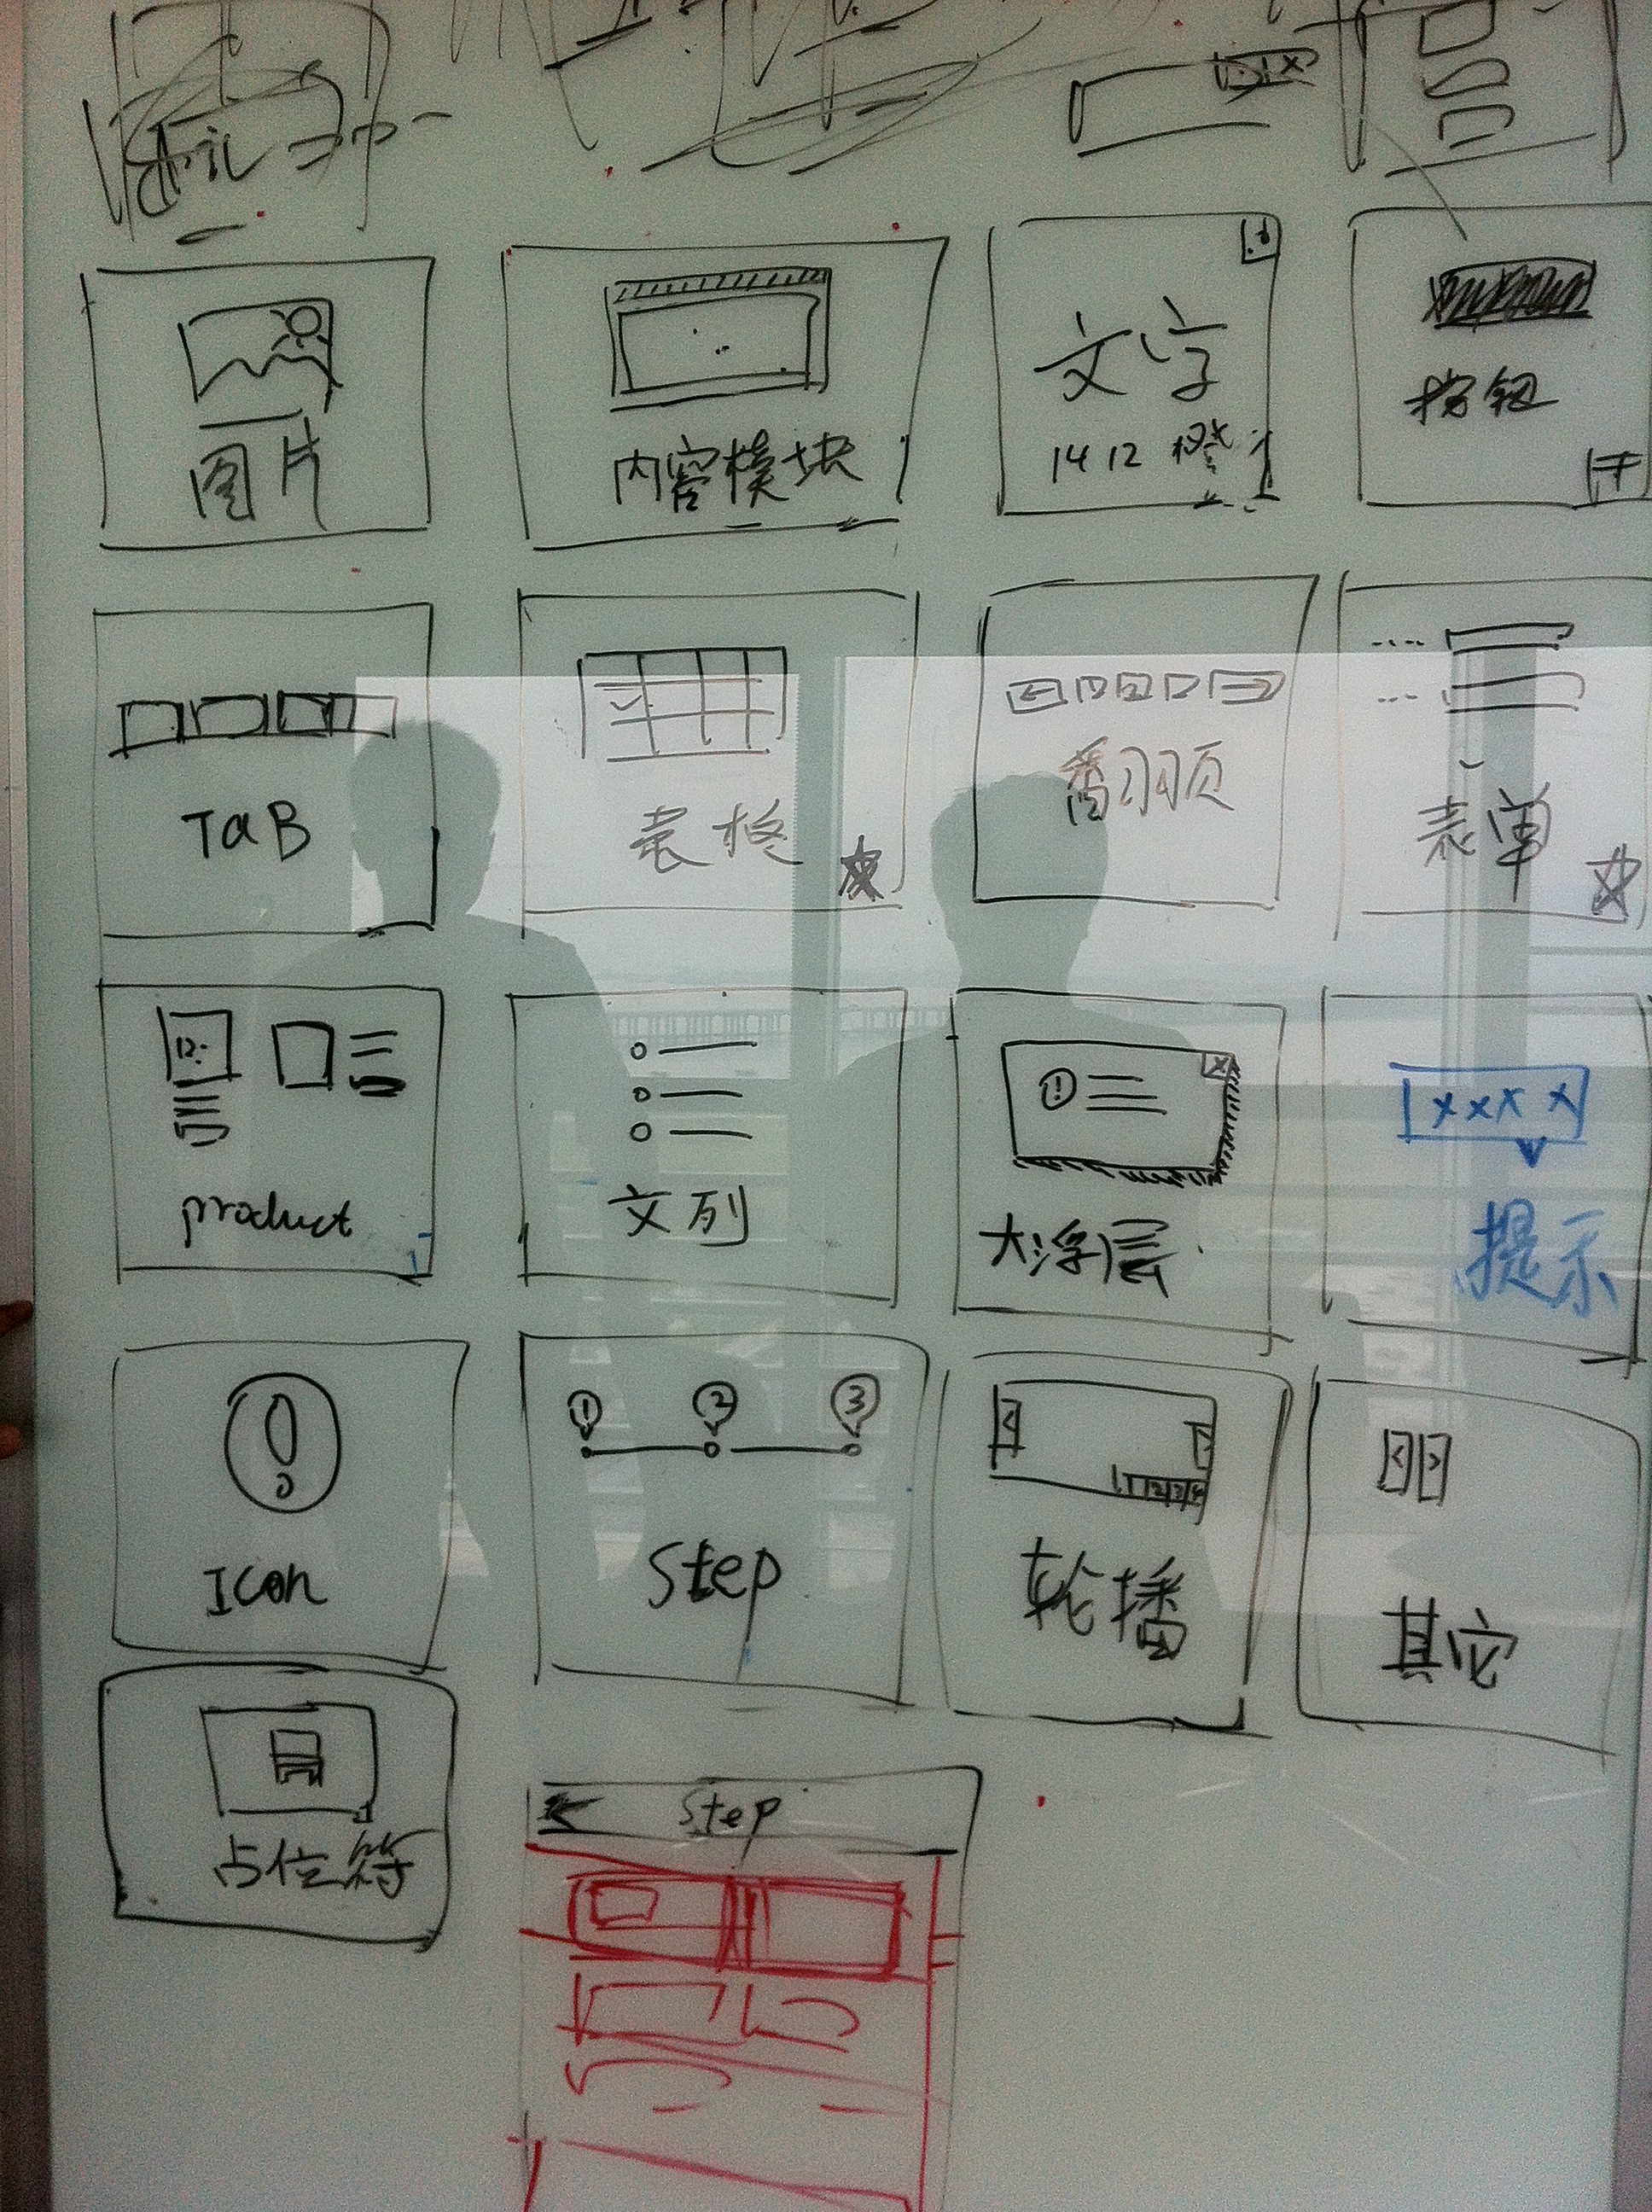 图片
内容模块
文字
14 12 橙
按钮
TaB
表格
翻页
表单
product
文列
大浮层
xxxx
提示
Icon
1 2 3
Step
轮播
< >
其它
占位符
Step